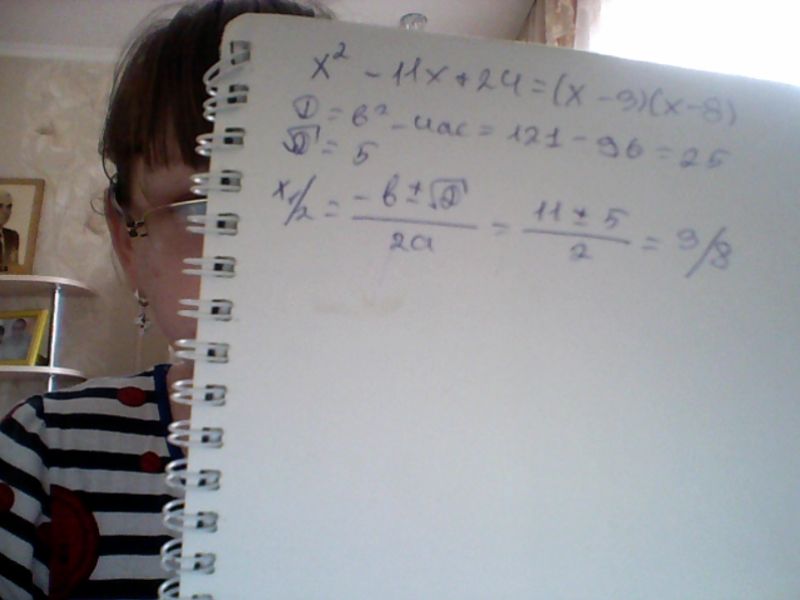 x² - 11x + 24 = (x - 3)(x - 8)
D = b² - 4ac = 121 - 96 = 25
√D = 5
x₁/₂ = (-b ± √D)/(2a) = (11 ± 5)/2 = 3/8